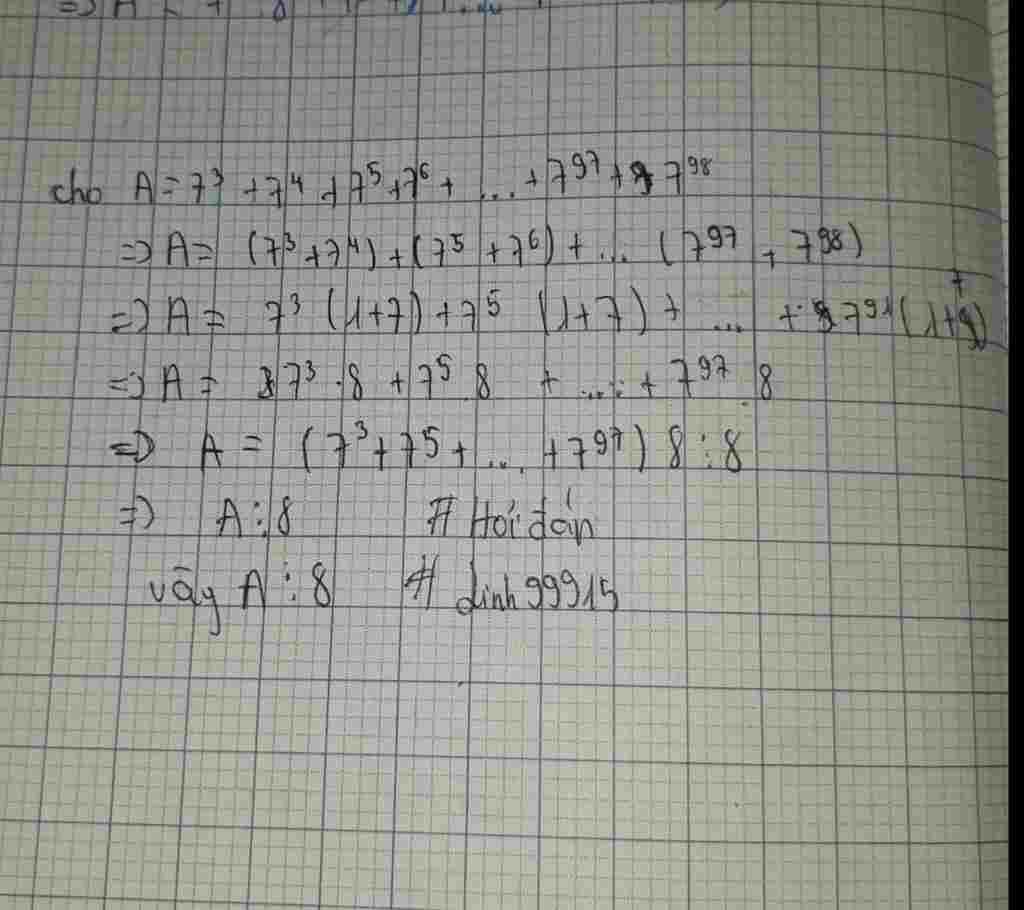 cho A = 7³ + 7⁴ + 7⁵ + 7⁶ + ... + 7⁹⁷ + 7⁹⁸
=> A = (7³ + 7⁴) + (7⁵ + 7⁶) + ... (7⁹⁷ + 7⁹⁸)
=> A = 7³ (1+7) + 7⁵ (1+7) + ... + 7⁹⁷ (1+7)
=> A = 7³ . 8 + 7⁵ . 8 + ... + 7⁹⁷ . 8
=> A = (7³ + 7⁵ + ... + 7⁹⁷) 8 ⋮ 8
=> A ⋮ 8 # Hỏi đán
vậy A ⋮ 8 # linh 99915